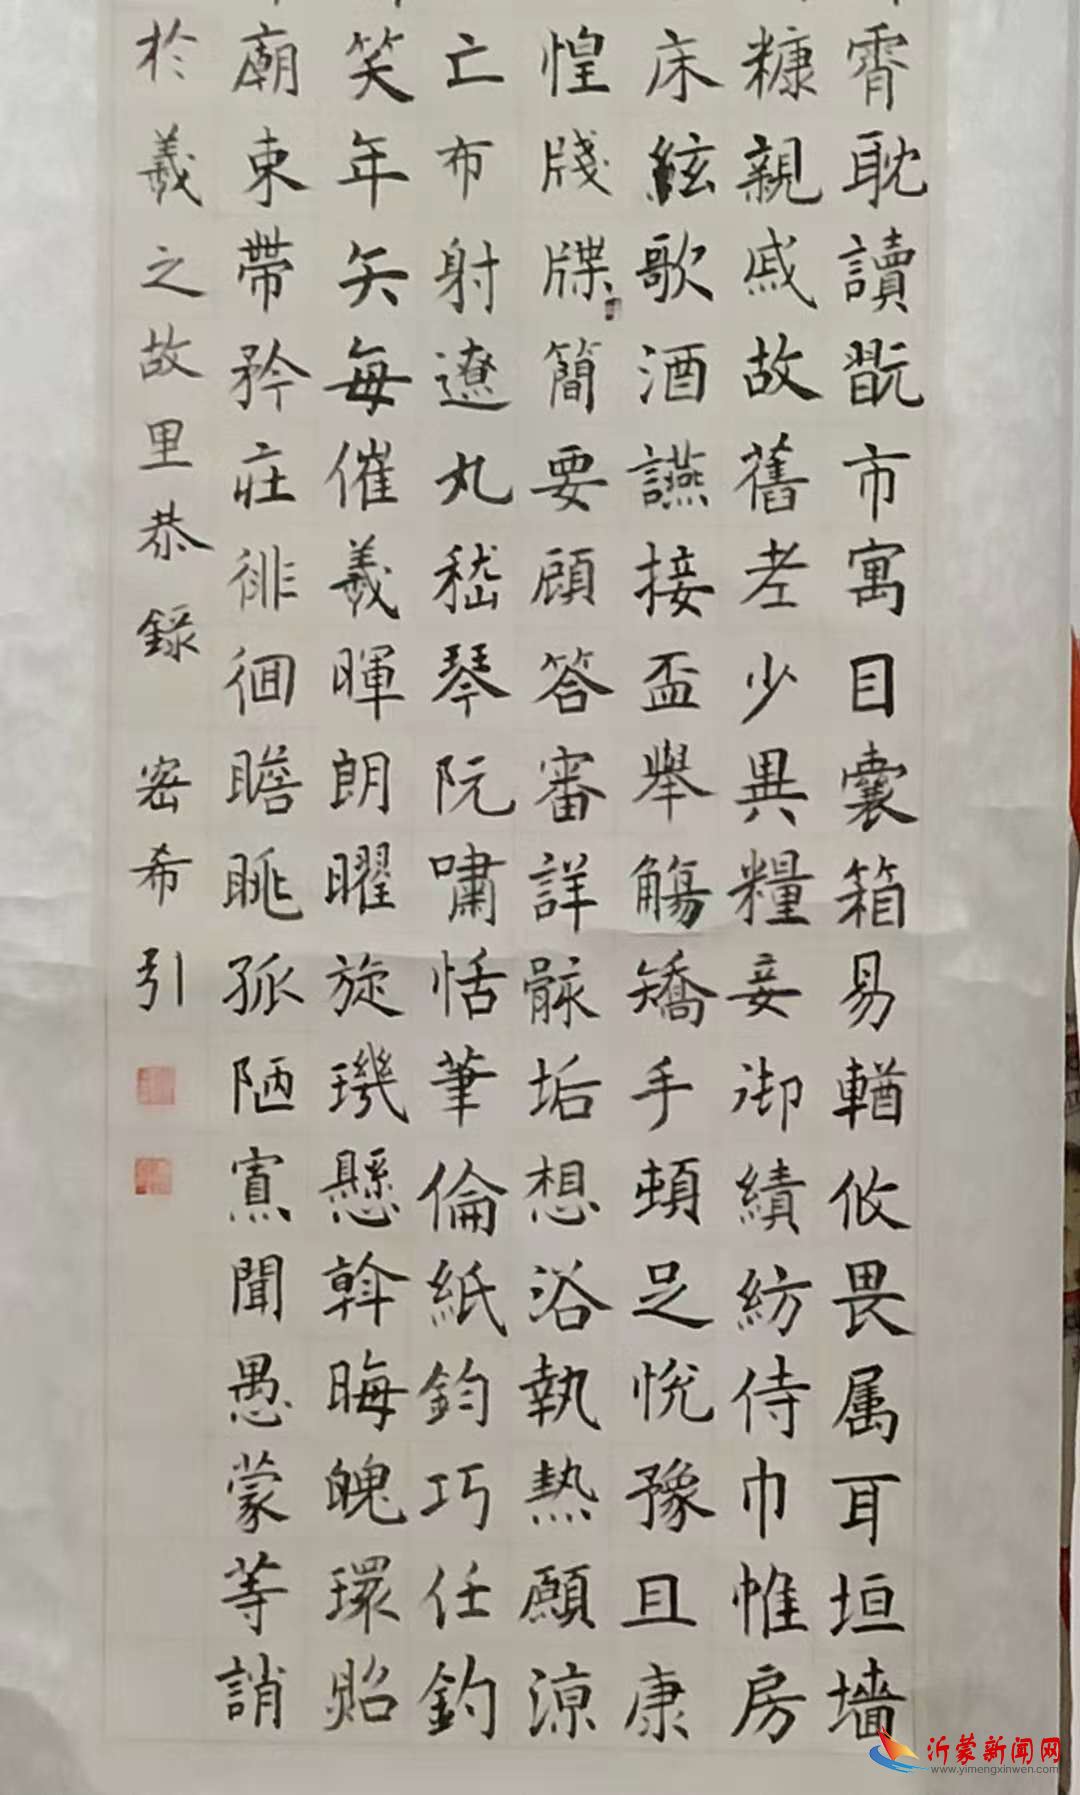 霄耽讀翫市寓目囊箱易輶攸畏属耳垣墙
糠親戚故舊老少異糧妾御績紡侍巾帷房
床絃歌酒讌接盃舉觴矯手頓足悅豫且康
惶牋牒簡要顧答審詳骸垢想浴執熱願涼
亡布射遼丸嵇琴阮嘯恬筆倫紙鈞巧任釣
笑年矢每催羲暉朗曜旋璣懸斡晦魄環照
廟束帶矜莊徘徊瞻眺孤陋寡聞愚蒙等誚
於羲之故里恭錄 密希引
沂蒙新闻网
www.yimengxinwen.com